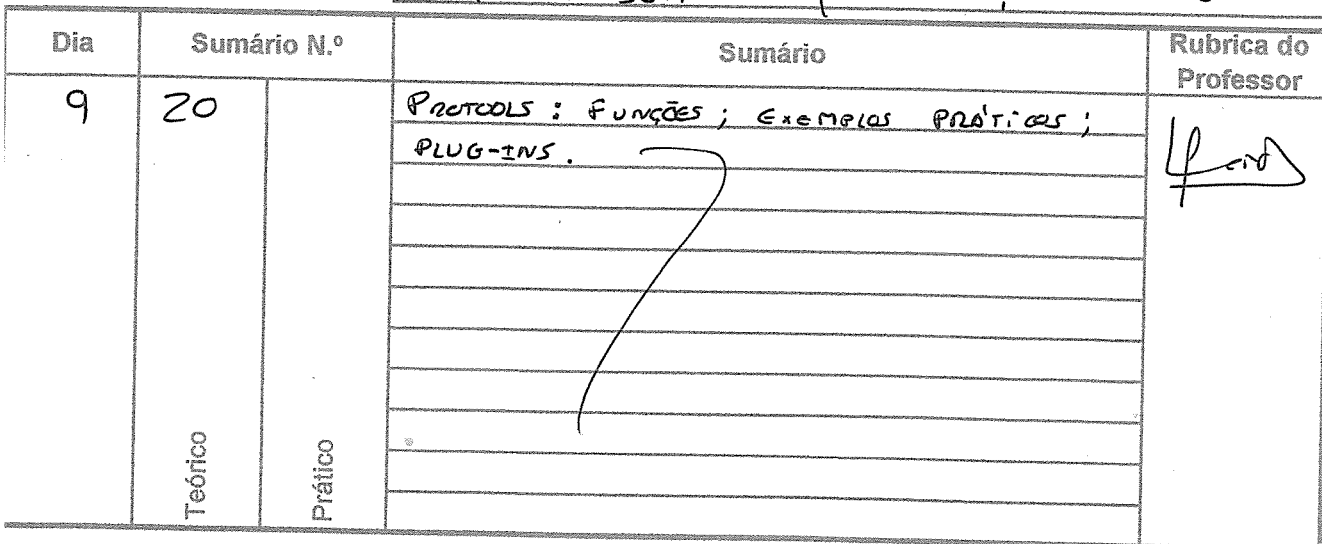 Dia Sumário N.º Sumário Rubrica do Professor
9 20 PROTOOLS : FUNÇÕES ; EXEMPLOS PRÁTICOS ;
PLUG-INS .
Teórico Prático